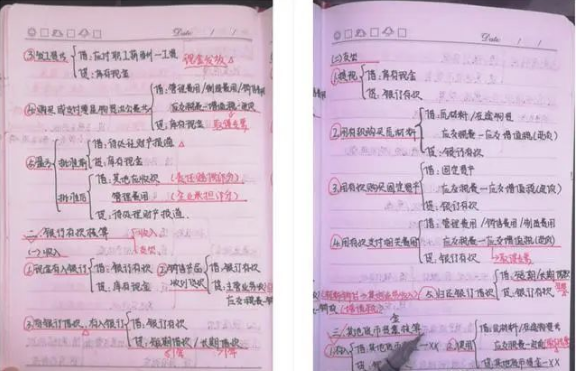 Date
③发工资 借:应付职工薪酬—工资 现金发放
贷:库存现金
借:管理费用/制造费用/销售费用
应交税费—应交增值税(进项)
贷:库存现金
批准前 借:待处理财产损溢
贷:库存现金
批准后 借:其他应收款(责任赔偿部分)
管理费用(企业承担部分)
贷:待处理财产损溢
二、银行存款核算 收入
支出
(一)收入
①现金存入银行 借:银行存款
贷:库存现金
②销售产品收到货款 借:银行存款
贷:主营业务收入
应交税费—应
借:银行存款
贷:短期借款/长期借款
Date
(二)支出
①提现 借:库存现金
贷:银行存款
②用存款购买原材料 借:原材料/在途物资
应交税费—应交增值税(进项)
贷:银行存款
③用存款购买固定资产 借:固定资产
应交税费—应交增值税(进项)
贷:银行存款
④用存款支付相关费用 借:管理费用/销售费用/制造费用
应交税费—应交增值税(进项)
贷:银行存款
⑤归还银行借款 借:短期/长期借款
贷:银行存款
三、其他货币资金核算
①存入 借:其他货币资金—XX
贷:银行存款
②使用 借:原材料/在途物资
应交税费—应交
贷:其他货币资金—XX